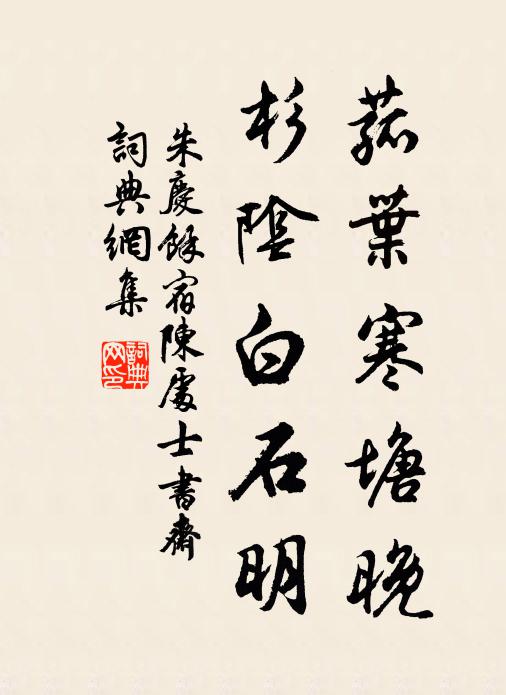 菰葉寒塘晚
杉陰白石明
朱慶餘宿陳處士書齋
詞典網集
詞典網印